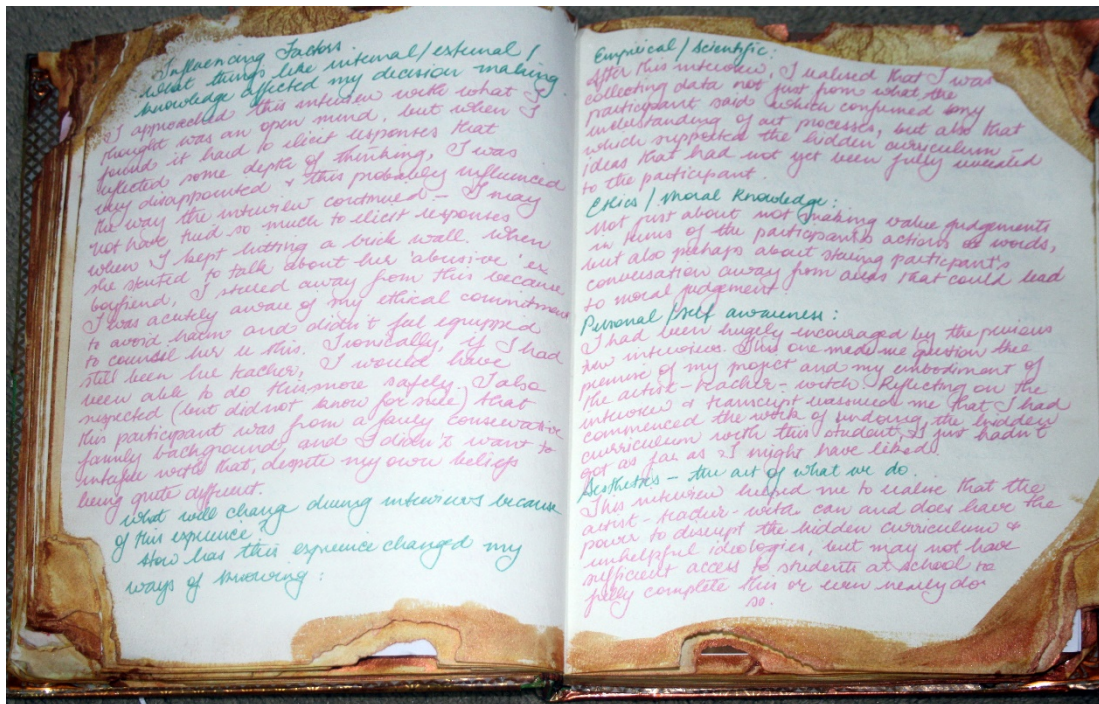 Influencing Factors.
What things like internal/external/
knowledge affected my decision making
I approached this interview with what I
thought was an open mind, but when I
found it hard to elicit responses that
reflected some depth of thinking, I was
very disappointed & this probably influenced
the way the interview continued - I may
not have tried so much to elicit responses
when I kept hitting a brick wall. When
she started to talk about her 'abusive' ex
boyfriend, I steered away from this because
I was acutely aware of my ethical commitment
to avoid harm and didn't feel equipped
to counsel her in this. Ironically, if I had
still been her teacher, I would have
been able to do this more safely. I also
suspected (but did not know for sure) that
this participant was from a fairly conservative
family background, and I didn't want to
interfere with that, despite my own beliefs
being quite different.
What will change during interviews because
of this experience?
How has this experience changed my
ways of knowing:
Empirical/Scientific:
After this interview, I realised that I was
collecting data not just from what the
participant said which confirmed my
understanding of art processes, but also that
which supported the hidden curriculum -
ideas that had not yet been fully revealed
to the participant.
Ethics/Moral Knowledge:
Not just about not making value judgements
in terms of the participant's actions or words,
but also perhaps about steering participant's
conversation away from areas that could lead
to moral judgement.
Personal/self awareness:
I had been hugely encouraged by the previous
few interviews. This one made me question the
premise of my project and my embodiment of
the artist-teacher-witch. Reflecting on the
interview & transcript reassured me that I had
commenced the work of undoing the hidden
curriculum with this student, I just hadn't
got as far as I might have liked!
Aesthetics - the art of what we do.
This interview helped me to realise that the
artist-teacher-witch can and does have the
power to disrupt the hidden curriculum &
unhelpful ideologies, but may not have
sufficient access to students at school to
fully complete this or even nearly do
so.